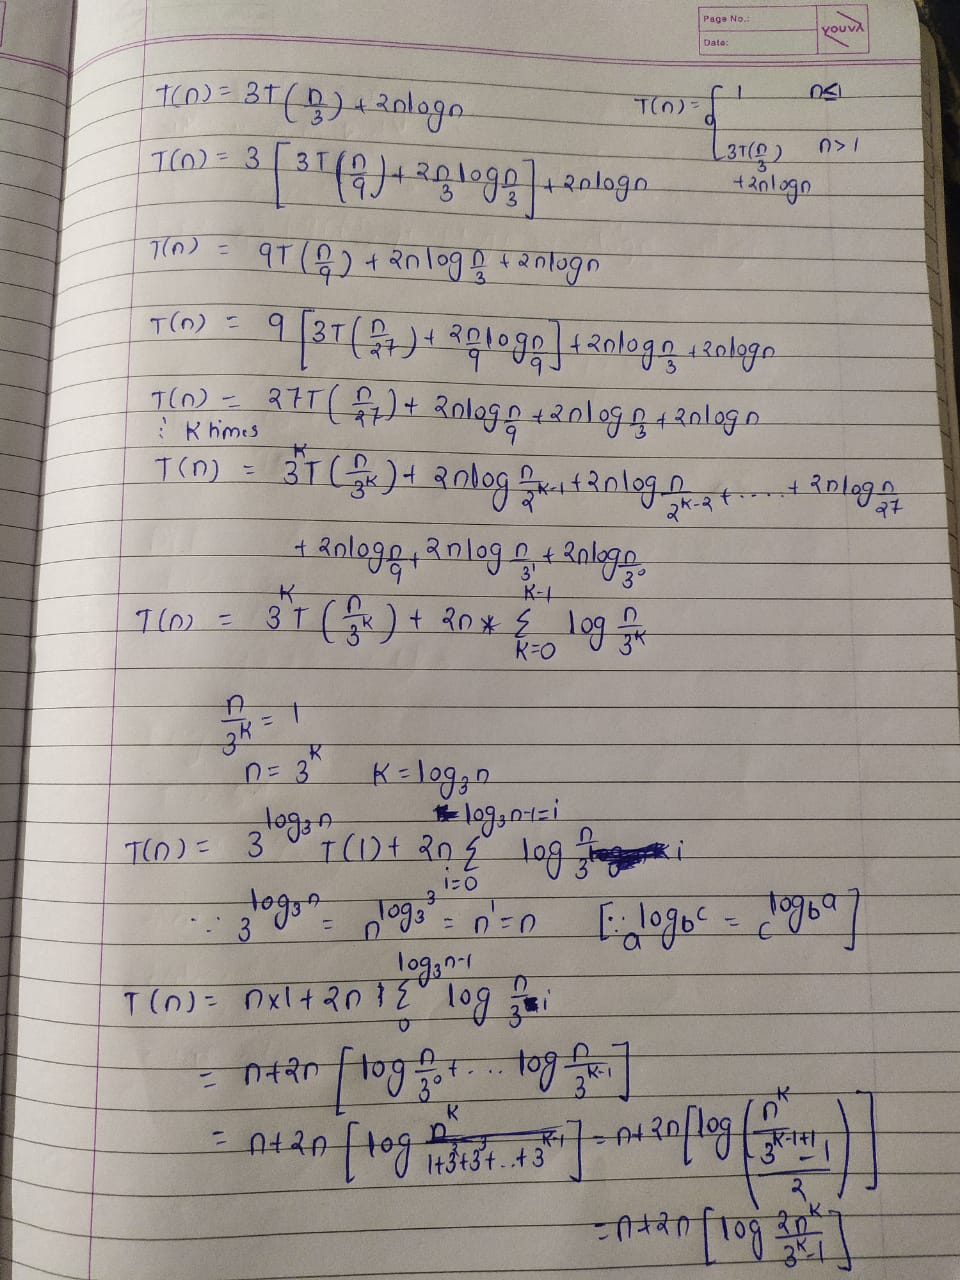 Page No.:
Date:
YOUVA
T(n) = 3T(n/3) + 2nlogn
T(n) = { 1 n≤1
3T(n/3) + 2nlogn n>1
T(n) = 3[3T(n/9) + 2n/3 log n/3] + 2nlogn
T(n) = 9T(n/9) + 2nlog n/3 + 2nlogn
T(n) = 9[3T(n/27) + 2n/9 log n/9] + 2nlog n/3 + 2nlogn
T(n) = 27T(n/27) + 2nlog n/9 + 2nlog n/3 + 2nlogn
⋮ K times
T(n) = 3^K T(n/3^K) + 2nlog n/2^(K-1) + 2nlog n/2^(K-2) + ..... + 2nlog n/27
+ 2nlog n/9 + 2nlog n/3^1 + 2nlog n/3^0
T(n) = 3^K T(n/3^K) + 2n * Σ_(K=0)^(K-1) log n/3^K
n/3^K = 1
n = 3^K K = log₃n
T(n) = 3^(log₃n) T(1) + 2n Σ_(i=0)^(log₃n-1=i) log n/3^i
∵ 3^(log₃n) = n^(log₃3) = n^1 = n [∵ a^(log_b c) = c^(log_b a)]
T(n) = n×1 + 2n Σ_0^(log₃n-1) log n/3^i
= n+2n [log n/3^0 + ... log n/3^(K-1)]
= n+2n [log n^K/(1+3^2+3^3+..+3^(K-1))] = n+2n [log (n^K/((3^(K-1+1)-1)/2))]
= n+2n [log 2n^K/(3^K-1)]